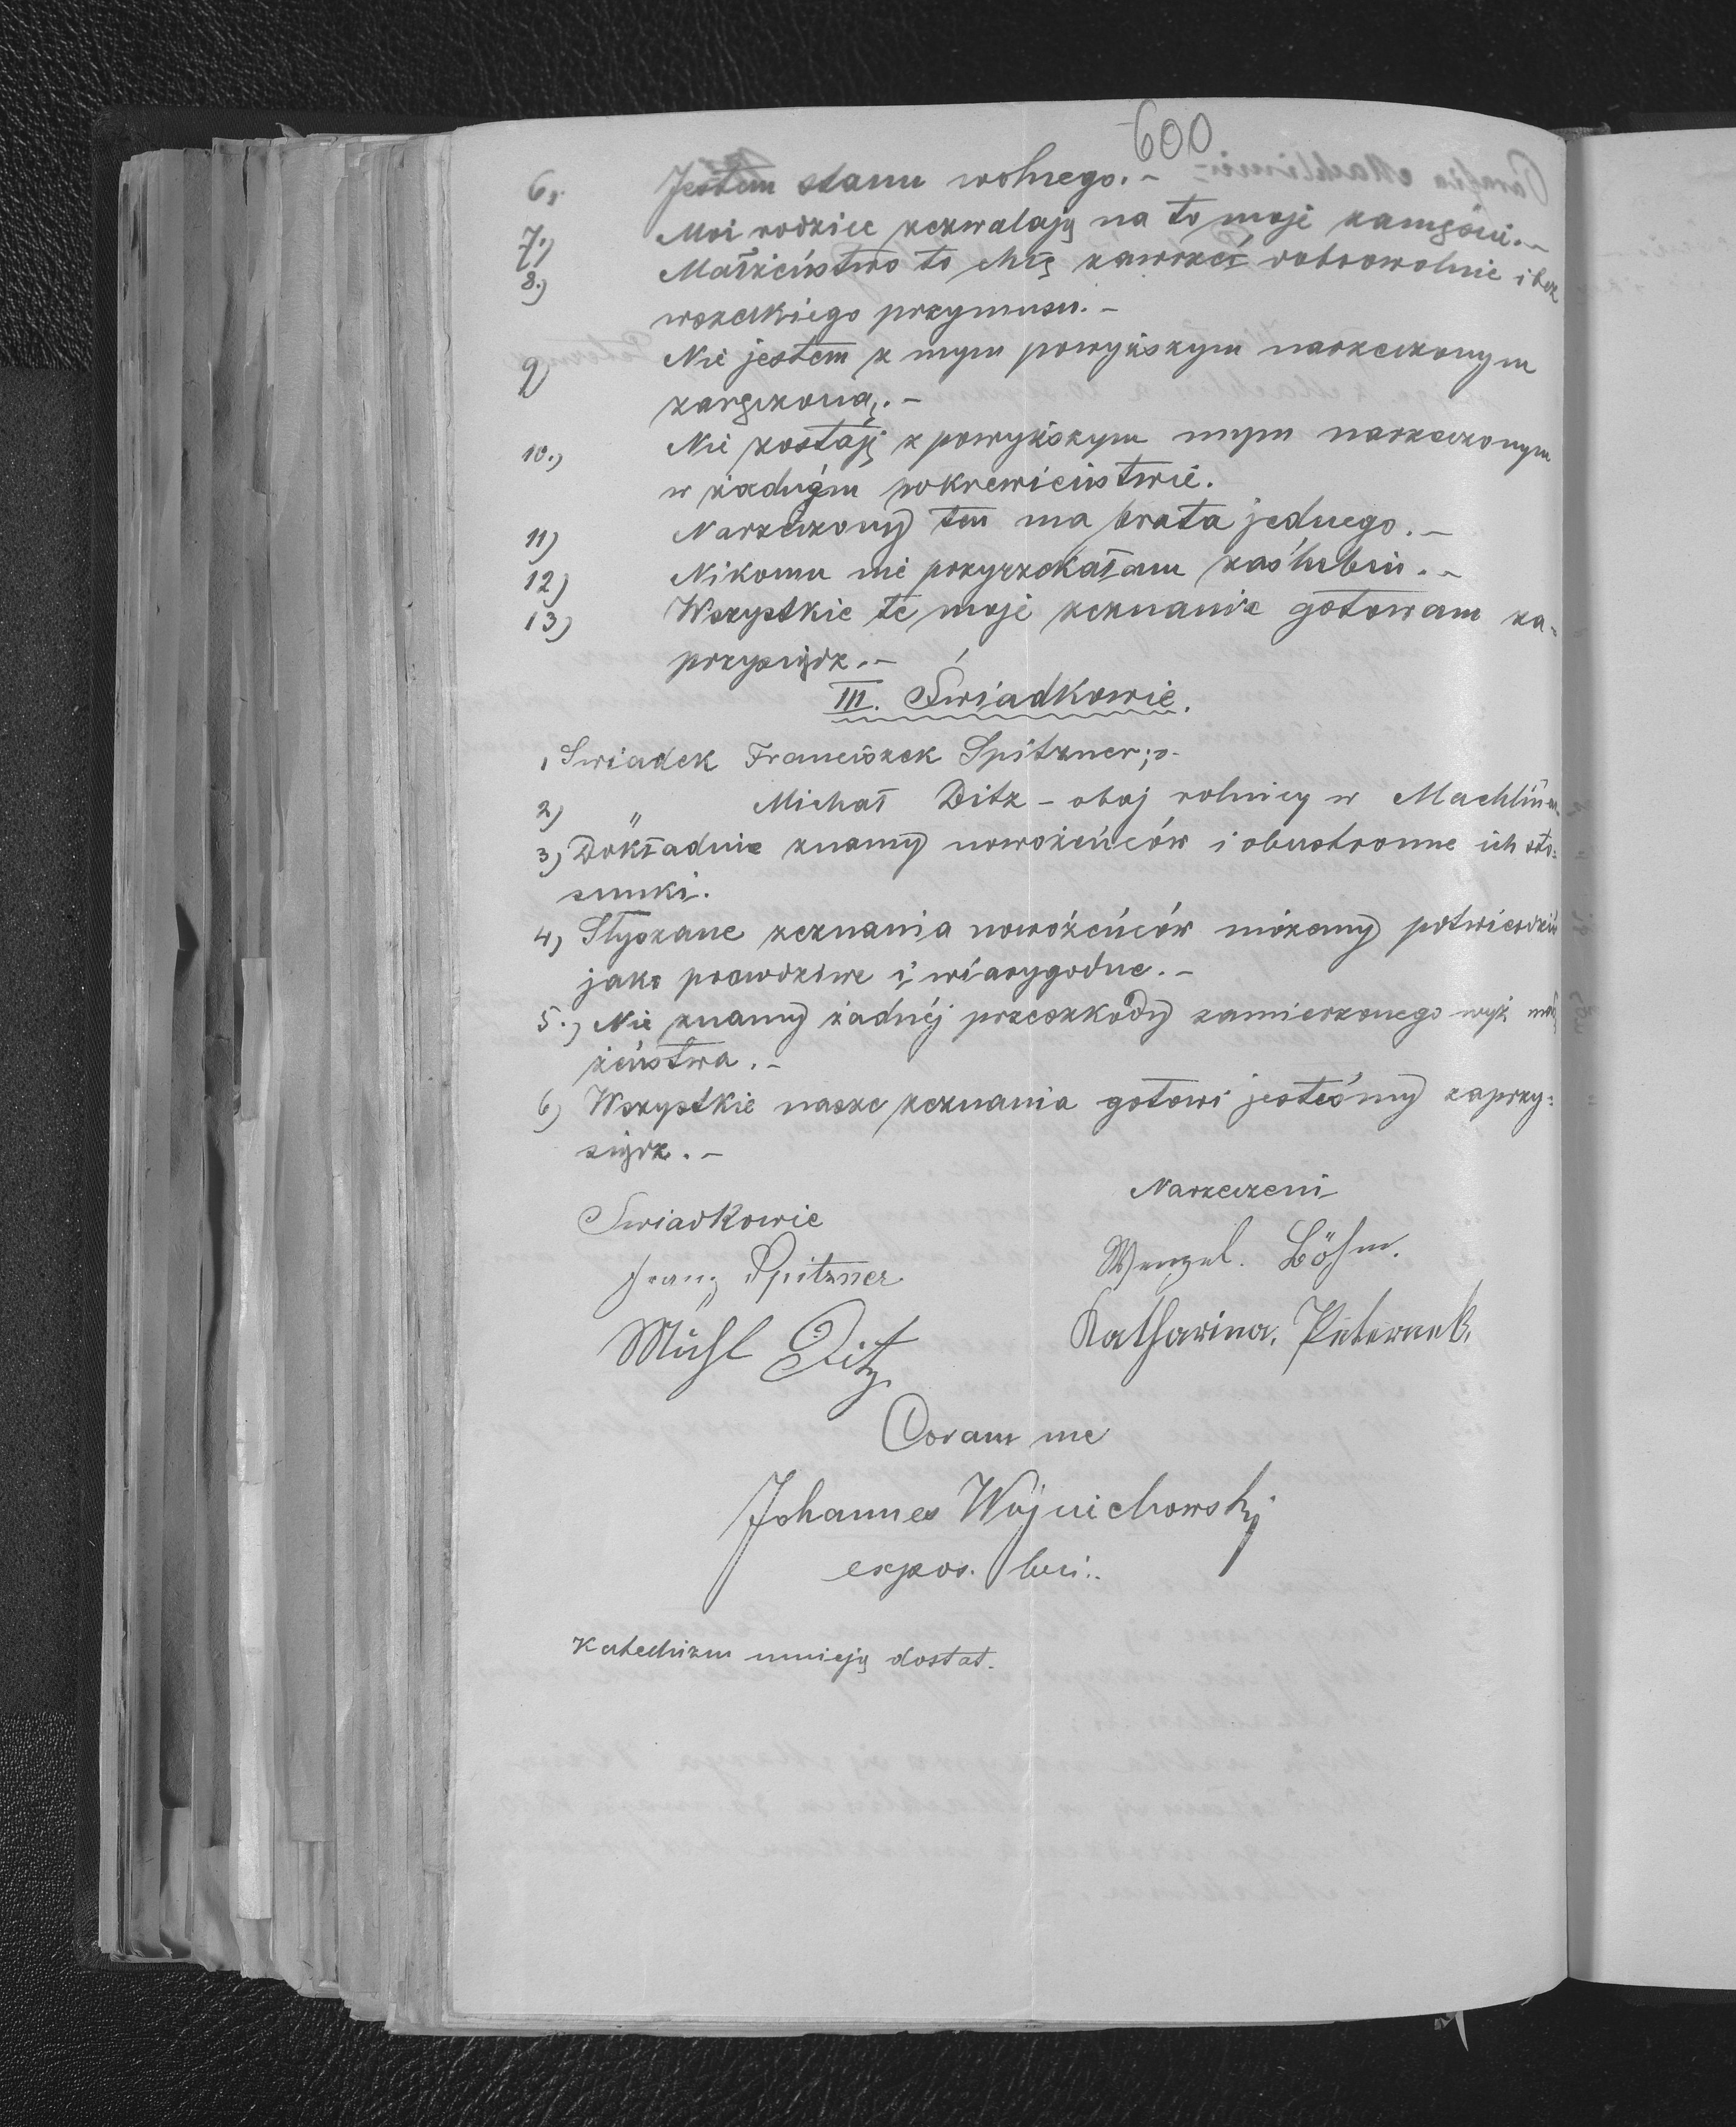 600
6. Jestem stanu wolnego. -
7.) Moi rodzice zezwalają na to moje zamęście. -
8.) Małżeństwo to chcę zawrzeć dobrowolnie i bez
wszelkiego przymusu. -
9 Nie jestem z mym powyższym narzeczonym
zaręczoną. -
10.) Nie zostaję z powyższym mym narzeczonym
w żadném pokrewieństwie.
11) Narzeczony ten ma brata jednego. -
12) Nikomu nie przyrzekałam zaślubin. -
13) Wszystkie te moje zeznania gotowam za-
przysiądz. -
III. Świadkowie.
1, Swiadek Franciszek Spitzner;
2) " Michał Ditz - obaj rolnicy w Machlińcu
3) Dokładnie znamy nowożeńców i obustronne ich sto=
sunki.
4) Słyszane zeznania nowożeńców możemy potwierdzić
jako prawdziwe i wiarygodne. -
5.) Nie znamy żadnéj przeszkody zamierzonego wyż mał
żeństwa. -
6) Wszystkie nasze zeznania gotowi jesteśmy zaprzy=
siądz. -
Narzeczeni
Swiadkowie
Wenzel. Böhm.
Franz Spitzner
Katharina. Peternek.
Michl Ditz
Coram me
Johannes Wojciechowski
expos. loci.
Katechizm umieją dostat.